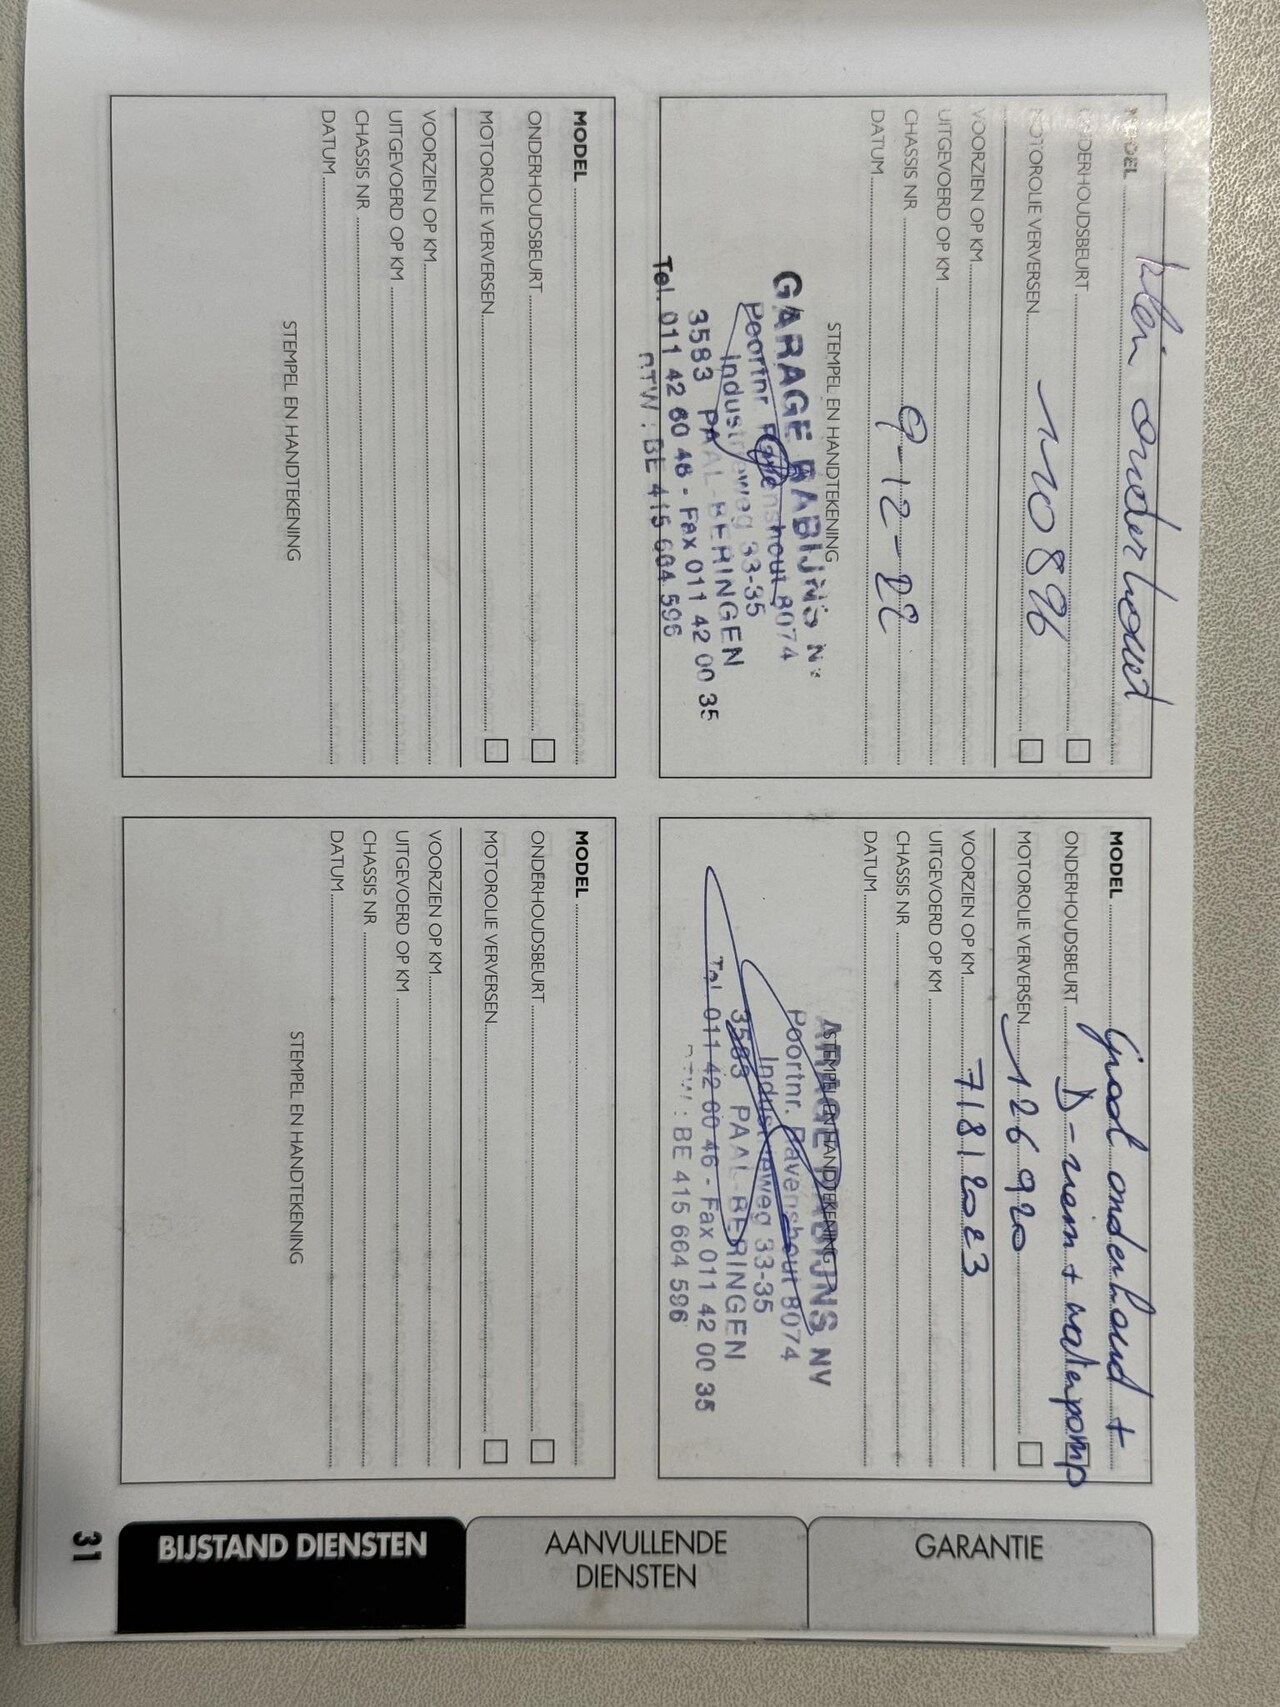 klein onderhoud
MODEL
ONDERHOUDSBEURT
MOTOROLIE VERVERSEN 110896
VOORZIEN OP KM
UITGEVOERD OP KM
CHASSIS NR 9-12-22
DATUM
STEMPEL EN HANDTEKENING
GARAGE RABIJNS NV
Poortnr Ravenshout 8074
Industrieweg 33-35
3583 PAAL-BERINGEN
Tel. 011 42 60 46 - Fax 011 42 00 35
BTW : BE 415 604 596
MODEL Groot onderhoud +
ONDERHOUDSBEURT D-riem + waterpomp
MOTOROLIE VERVERSEN 126920
VOORZIEN OP KM 7/8/2023
UITGEVOERD OP KM
CHASSIS NR
DATUM
STEMPEL EN HANDTEKENING
ARAGE RABIJNS NV
Poortnr. Ravenshout 8074
Industrieweg 33-35
3583 PAAL-BERINGEN
Tel. 011 42 60 46 - Fax 011 42 00 35
BTW : BE 415 664 596
MODEL
ONDERHOUDSBEURT
MOTOROLIE VERVERSEN
VOORZIEN OP KM
UITGEVOERD OP KM
CHASSIS NR
DATUM
STEMPEL EN HANDTEKENING
MODEL
ONDERHOUDSBEURT
MOTOROLIE VERVERSEN
VOORZIEN OP KM
UITGEVOERD OP KM
CHASSIS NR
DATUM
STEMPEL EN HANDTEKENING
GARANTIE
AANVULLENDE
DIENSTEN
BIJSTAND DIENSTEN
31